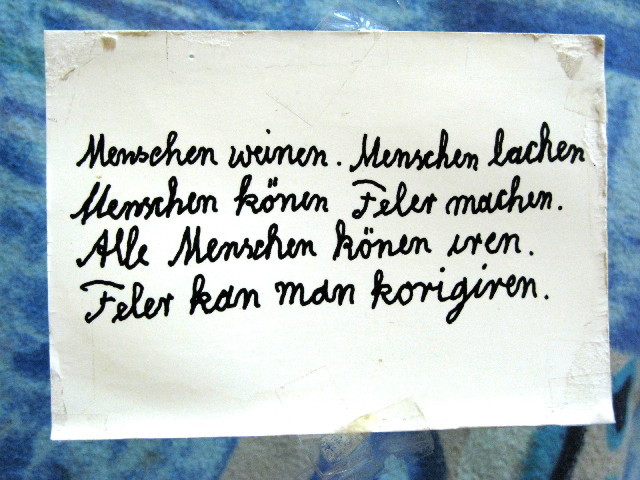 Menschen weinen. Menschen lachen
Menschen könen Feler machen.
Alle Menschen könen iren.
Feler kan man korigiren.